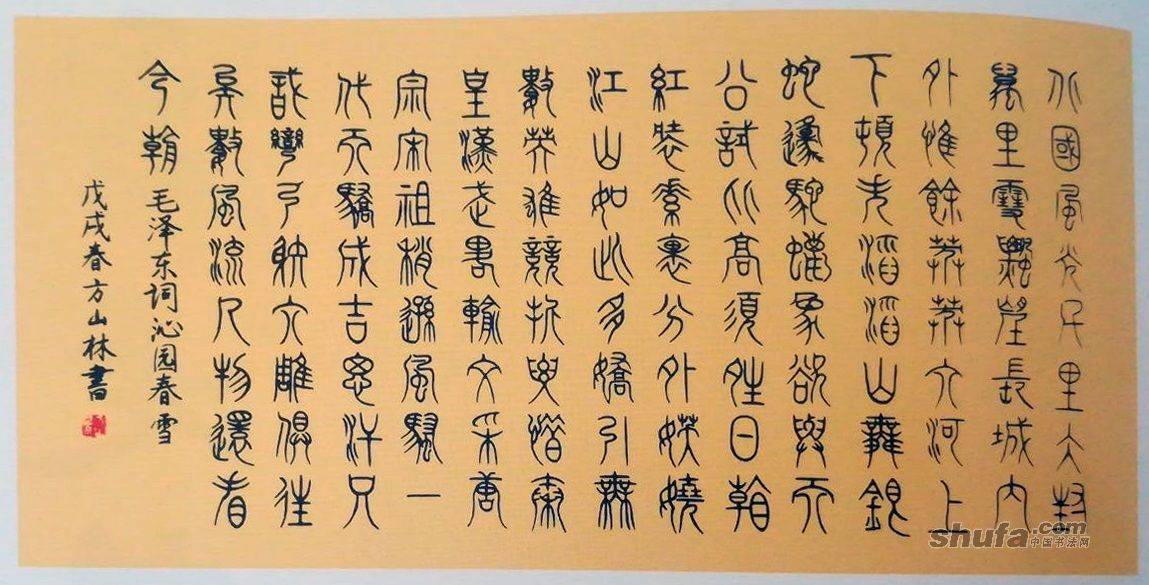 北國風光千里冰封
萬里雪飄望長城內
外惟餘莽莽大河上
下頓失滔滔山舞銀
蛇原馳蠟象欲與天
公試比高須晴日看
紅裝素裹分外妖嬈
江山如此多嬌引無
數英雄競折腰惜秦
皇漢武略輸文采唐
宗宋祖稍遜風騷一
代天驕成吉思汗只
識彎弓射大雕俱往
矣數風流人物還看
今朝 毛泽东词沁园春雪
戊戌春方山林書
shufa.com
中国书法网